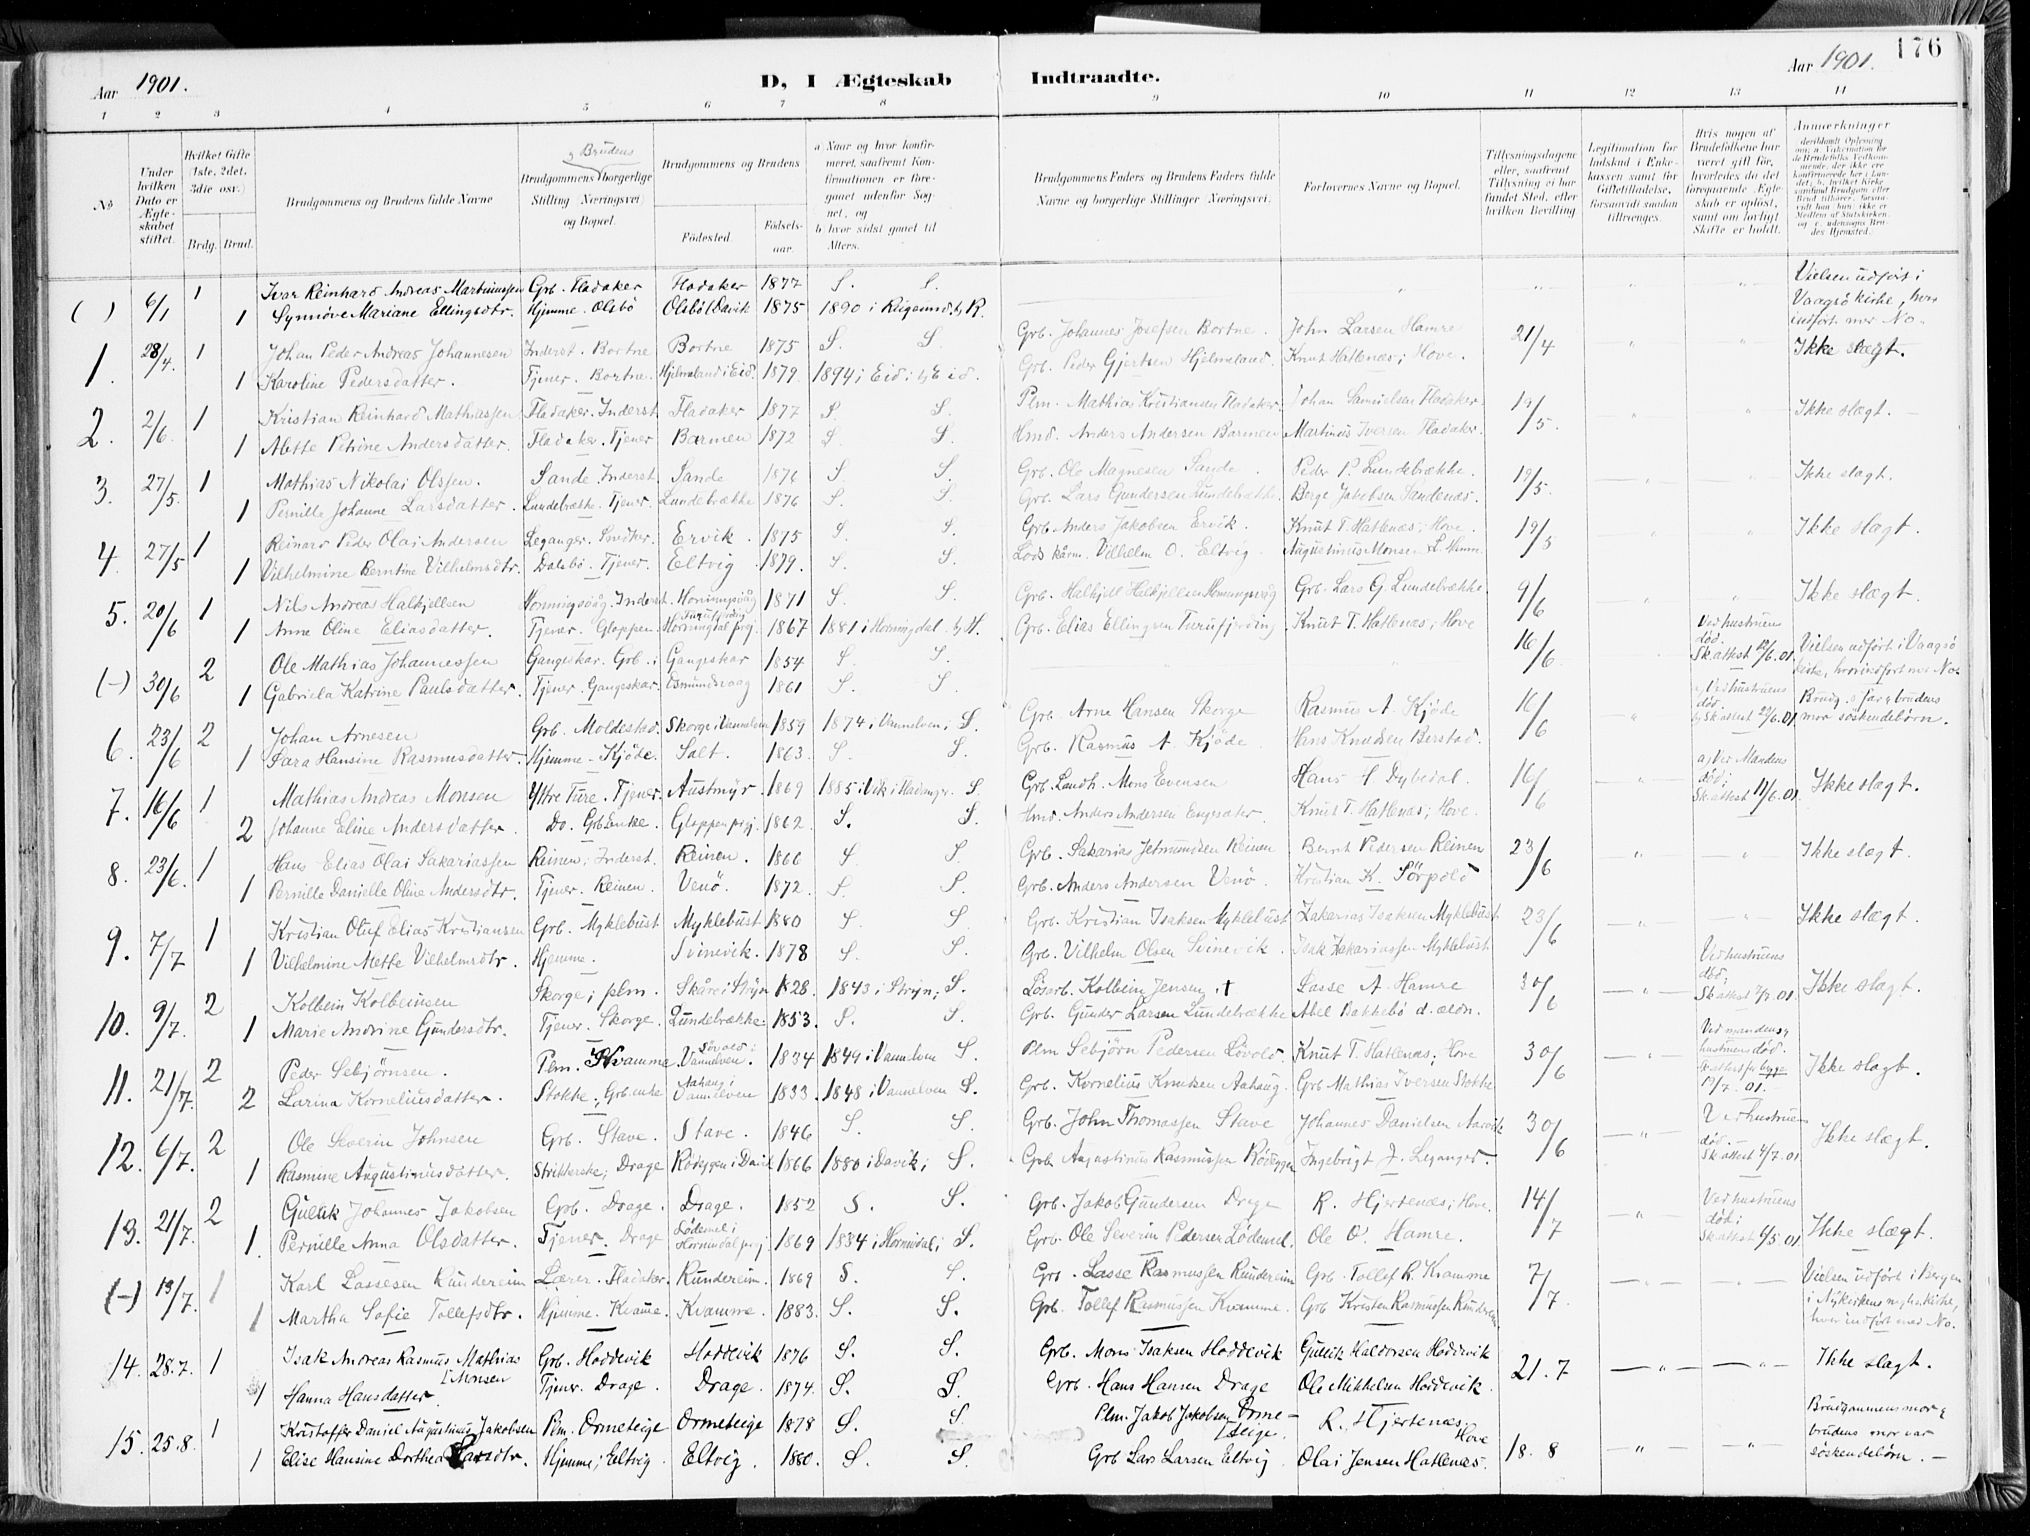 Aar 1901. D, I Ægteskab Indtraadte. Aar 1901. 176
1 2 3 4 5 6 7 8 9 10 11 12 13 14
No
Under hvilken Dato er Ægteskabet stiftet.
Hvilket Gifte (1ste, 2det, 3die osv.)
Brdg. Brud.
Brudgommens og Brudens fulde Navne
Brudgommens og Brudens borgerlige Stilling Næringsvei og Bopæl.
Brudgommens og Brudens
Fødested. Fødselsaar.
a Naar og hvor konfirmeret, saafremt Konfirmationen er foregaaet udenfor Sognet, og
b hvor sidst gaaet til Alters.
Brudgommens Faders og Brudens Faders fulde Navne og borgerlige Stillinger Næringsvei.
Forlovernes Navne og Bopæl.
Tillysningsdagene eller, saafremt Tillysning ei har fundet Sted, efter hvilken Bevilling
Legitimation for Indskud i Enkekassen samt for Giftetilladelse, forsaavidt saadan tiltrænges.
Hvis nogen af Brudefolkene har været gift før, hvorledes da det foregaaende Ægteskab er opløst, samt om lovligt Skifte er holdt.
Anmerkninger
( ) 6/1 1 Ivar Reinhard Andreas Martinussen Grb. Fladaker Fladaker 1877 S. S. Vielsen udført i
1 Synnøve Mariane Ellingsdtr. Hjemme. Olsbö Olsbö i Davik 1875 1890 i Rugsund, b, R. Vaagsö kirke, hvor indført med No.
1. 28/4 1 Johan Peder Andreas Johannesen Inderst. Bortne Bortne 1875 S. S. Grb. Johannes Josefsen Bortne. John Larsen Hamre 21/4 Ikke slægt.
1 Karoline Pedersdatter. Tjener. Bortne. Hjelmeland i Eid. 1879. 1894 i Eid; b, Eid. Grb. Peder Gjertsen Hjelmeland. Knut Hatlenæs; Hove.
2. 2/6 1 Kristian Reinhard Mathiassen Fladaker. Inderst Fladaker 1877 S. S. Plm. Mathias Kristiansen Fladaker. Johan Samuelsen Fladaker 19/5. Ikke slægt.
1 Alette Petrine Andersdatter. Fladaker. Tjener Barmen 1872 S. S. Hmd. Anders Andersen Barmen Martinus Iversen Fladaker.
3. 27/5 1 Mathias Nikolai Olssen. Sande. Inderst. Sande 1876 S. S. Grb. Ole Magnesen Sande. Peder P. Lundebrække. 19/5. Ikke slagt.
1 Pernille Johanne Larsdatter. Lundebrække. Tjener. Lundebrække 1876 S. S. Grb. Lars Gundersen Lundebrække. Berge Jakobsen Sandenæs.
4. 27/5 1 Reinard Peder Olai Andersen Leganger. Snedker. Ervik. 1875 S. S. Grb. Anders Jakobsen Ervik. Knut T. Hatlenæs; Hove. 19/5 Ikke slagt.
1 Vilhelmine Berntine Vilhelmsdtr. Dalsbö. Tjener. Eltvig. 1879. S. S. Vilhelm O. Eltvig. Augustinus Monsen
5. 20/6 1 Nils Andreas Halkjelsen Honningsvåg. Inderst. Honningsvåg 1871 S. S. Grb. Halkjeld Halkjeldsen Honningsvåg Grb. Lars G. Lundebrække. 9/6 Ikke slægt.
1 Anne Oline Eliasdatter. Tjener. Gloppen. Hornindal prgj. 1867 1881 i Hornindal. b, H. Grb. Elias Ellingsen Turufjording Knut T. Hatlenæs; Hove
(-) 30/6 2 Ole Mathias Johannessen Gangeskar. Grb. i Gangeskar 1854 S. S. 16/6 Ved hustruens død. Skattest 12/6.01. Vielsen udført i Vaagsö
1 Gabriela Katrine Paulsdatter. Tjener. Gangeskar. Osmundsvaag 1861 S. S. kirke, hvor indført med No.
6. 23/6 2 Johan Arnesen Grb. Moldestad. Skorge i Vannelven 1859 1874 i Vannelven; S. Grb. Arne Hansen Skorge Rasmus A. Kjöde 16/6 a, Ved hustruens død b, Skattest 22/6.01. Brudg.s far og brudens mor söskendebörn.
1 Sara Hansine Rasmusdatter. Hjemme - Kjöde. Salt. 1863. S. S. Grb. Rasmus A. Kjöde. Hans Knudsen Berstad.
7. 16/6 1 Mathias Andreas Monsen Yttre Ture. Tjener. Austmyr. 1869 1885 i Vik i Fladanger. S. Grb. Landh. Mons Evensen Hans A Dybedal. 16/6 a, Ved Mandens død; Skattest 11/6.01. Ikke slægt.
2 Johanne Eline Andersdatter. Do. Grb Enke. Gloppen prgj. 1862. S. S. Hmd. Anders Andersen Engesæter. Knut T. Hatlenæs; Hove.
8. 23/6. 1 Hans Elias Olai Sakariassen Reinen; Inderst. Reinen. 1866 S. S. Grb. Sakarias Jetmundsen Reinen Bernt Pedersen Reinen 23/6 Ikke slægt.
1 Pernille Danielle Oline Andersdtr. Tjener. Reinen. Venö. 1872. S. S. Grb. Anders Andersen Venö. Kristian K. Sörpold
9. 7/7 1 Kristian Oluf Elias Kristiansen Grb. Myklebust Myklebust 1880 S. S. Grb. Kristian Isaksen Myklebust Zakarias Isaksen Myklebust 23/6 Ikke slægt.
1 Vilhelmine Mette Vilhelmsdtr. Hjemme. Svinevik. 1878 S. S. Grb. Vilhelm Olsen Svinevik. Isak Zakariassen Myklebust
10. 9/7. 2 Kolbein Kolbeinsen Skorge; plm. Skåre i Stryn 1828. 1843 i Stryn; S. Lösarb. Kolbein Jensen, † Lasse A. Hamre 30/6 Ved hustruens død. Skattest 2/7.01. Ikke slægt.
1 Marie Andrine Gundersdtr. Tjener. Skorge. Lundebrække. 1853. S. S. Grb. Gunder Larsen Lundebrække Abel Bakkebö d. ældr.
11. 21/7. 2 Peder Sebjörnsen. Plm. Kvamme Lövold i Vannelven. 1834 1849 i Vannelven S. Plm Sebjörn Pedersen Lövold. Knut T. Hatlenæs; Hove 30/6 Ved mandens og hustruens død. Skattest for begge 13/7.01. Ikke slægt.
2 Larina Korneliusdatter. Stokke, Grb. enke Aahaug i Vannelven 1833. 1848 i Vannelven S. Grb. Kornelius Knutsen Aahaug. Grb Mathias Iversen Stokke
12. 6/7. 2 Ole Severin Johnsen Grb. Stave. Stave. 1846 S. S. Grb. John Thomassen Stave Johannes Danielsen Aarvik 30/6 Ved hustruens død. Skattest 4/7.01. Ikke slægt.
1 Rasmine Augustinusdatter. Strikkerske; Drage Rödeggen i Davik 1866 1880 i Davik; S. Grb. Augustinus Rasmussen Rödeggen Ingebrigt J. Leganger.
13. 21/7. 2 Gullak Johannes Jakobsen Grb. Drage. Drage. 1852 S. S. Grb. Jakob Gundersen Drage R. Hjertenæs; Hove. 14/7 Ved hustruens død; Skattest 6/5.01 Ikke slægt.
1. Pernille Anna Olsdatter. Tjener. Drage Lödemel i Hornindal prgj. 1869 1884 i Hornindal; S. Grb. Ole Severin Pedersen Lödemel. Ole O. Hamre.
(-) 13/7. 1 Karl Lassesen Rundereim Lærer. Fladaker. Rundereim. 1869 S. S. Grb. Lasse Rasmussen Rundereim Grb. Tollef R. Kvamme 7/7. Vielsen udført i Bergen
1 Martha Sofie Tollefsdtr. Hjemme. Kvamme. Kvamme. 1883. S. S. Grb. Tollef Rasmussen Kvamme. Grb Kristen Rasmussen Rundereim i Nykirkens kirke, hvor indført med No.
14. 28.7. 1 Isak Andreas Rasmus Mathias Monsen Grb. Hoddevik Hoddevik 1876 S. S. Grb. Mons Isaksen Hoddevik Gullik Haldorsen Hoddevik 21.7 Ikke slagt.
1 Hanna Hansdatter. Tjener. Drage. Drage. 1874. S. S. Grb. Hans Hansen Drage Ole Mikkelsen Hoddevik.
15. 25.8. 1 Kristoffer Daniel Augustinus Jakobsen Plm. Ormeteige Ormeteige 1878 S. S. Plm. Jakob Jakobsen Ormeteige. R. Hjertenæs. Hove 18.8 Brudgommens mor og brudens mor var söskendebörn.
1 Elise Hansine Dorthea Larsdtr. Hjemme; Eltvig. Eltvig. 1880. S. S. Grb Lars Larsen Eltvig. Olai Jensen Hatlenæs.